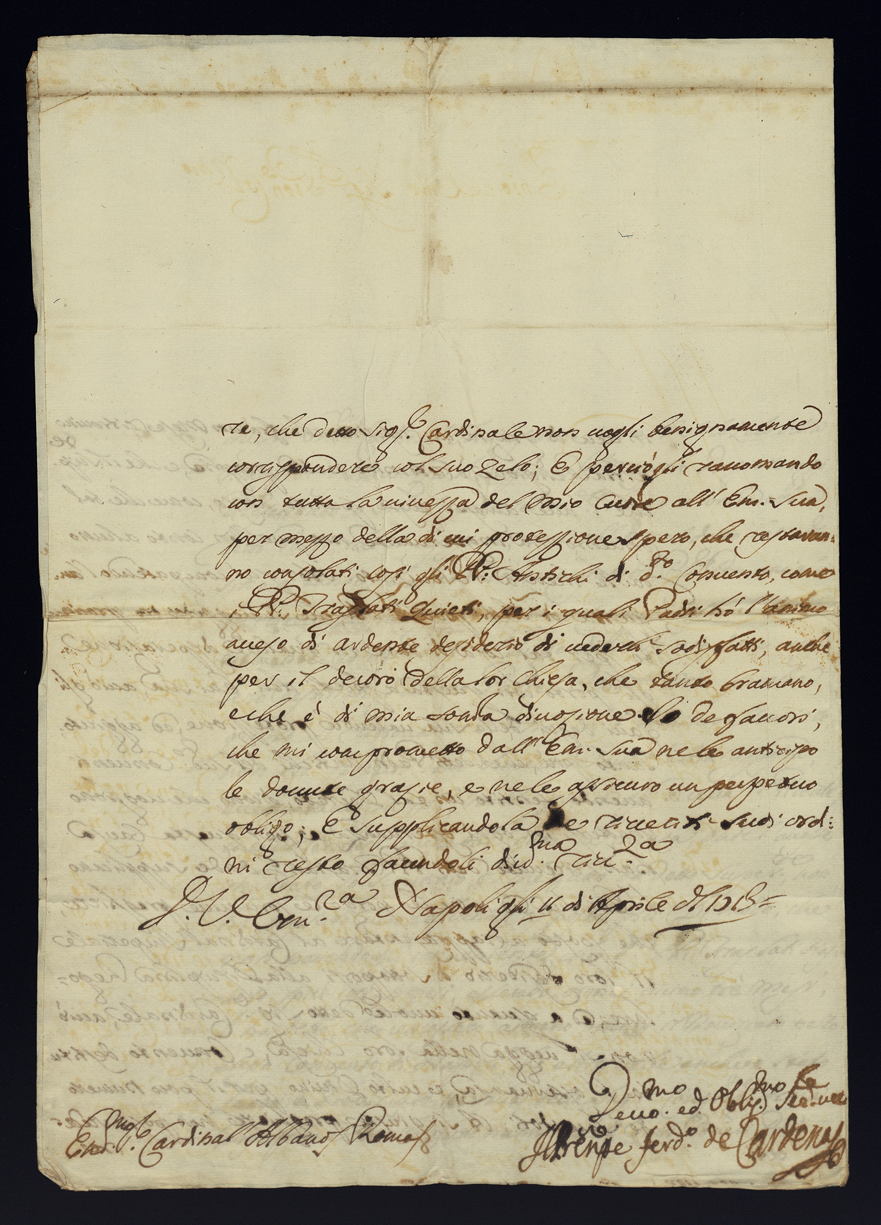 re, che detto Sig.r Cardinale non vogli benignamente
corrispondere col suo Zelo; E perciò gli racomando
con tutta la vivezza del mio cuore all' Em. Sua,
per mezzo della di cui protessione spero, che restaran=
no consolati così gli PP: Antichi di d.to Convento, come
i PP: Quieti, per i quali Padri hó l'animo
di ardente desiderio di vederli sodisfatti, anche
per il decoro della lor Chiesa, che tanto bramano,
e che é di mia somma divozione. de favori,
che mi comprometto dall' Em. Sua ne le anticipo
le dovute grazie, e ne le assicuro un perpetuo
obligo; E supplicandola de riveriti suoi ord=
ni resto facendoli riv.za
D. V. Em.za Napoli gli 11 di Aprile
Devo.mo ed Oblig.mo
Ferd.o de Cardenas
Em.mo Sig.r Cardinal Albani Roma